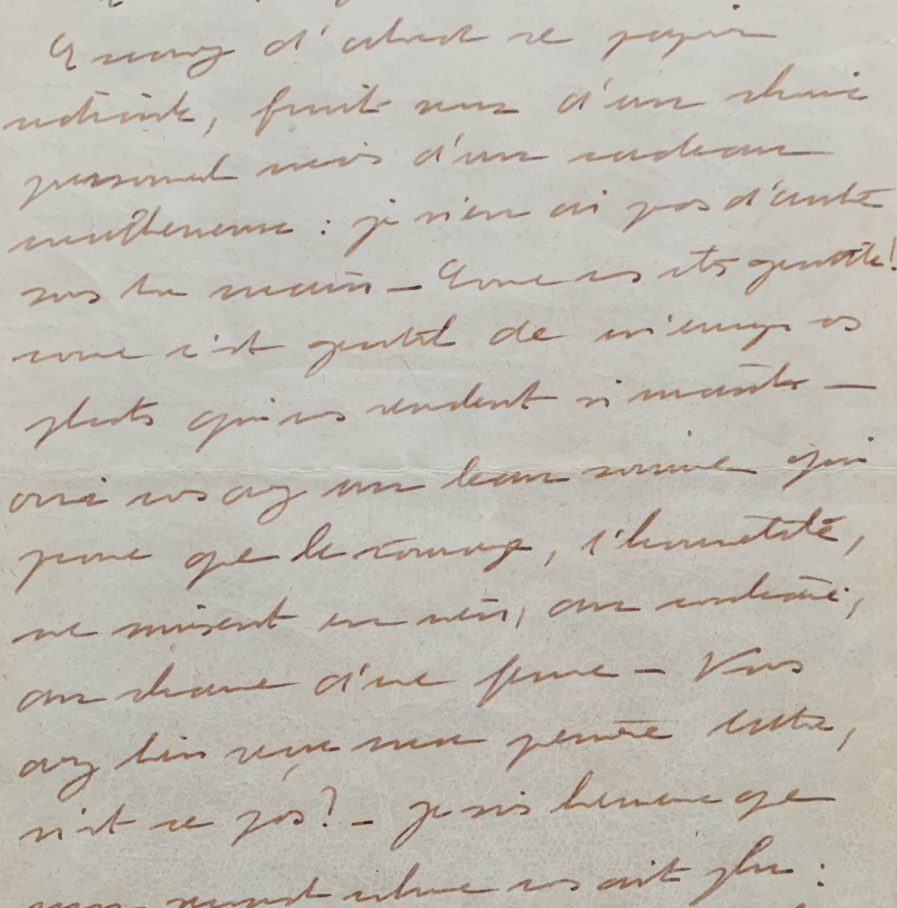 Excusez d'abord ce papier
ridicule, fruit non d'un choix
personnel mais d'un cadeau
malheureux : je n'en ai pas d'autre
sous la main – Comme vs êtes gentille!
comme c'est gentil de m'envoyer vos
photos qui vs rendent si –
vos avez un beau sourire qui
prouve que le courage, l'honnêteté,
ne nuisent en rien, au contraire,
au charme d'une femme – Vous
avez bien reçu ma première lettre,
n'est ce pas? – je suis que
mon vs ait plu :